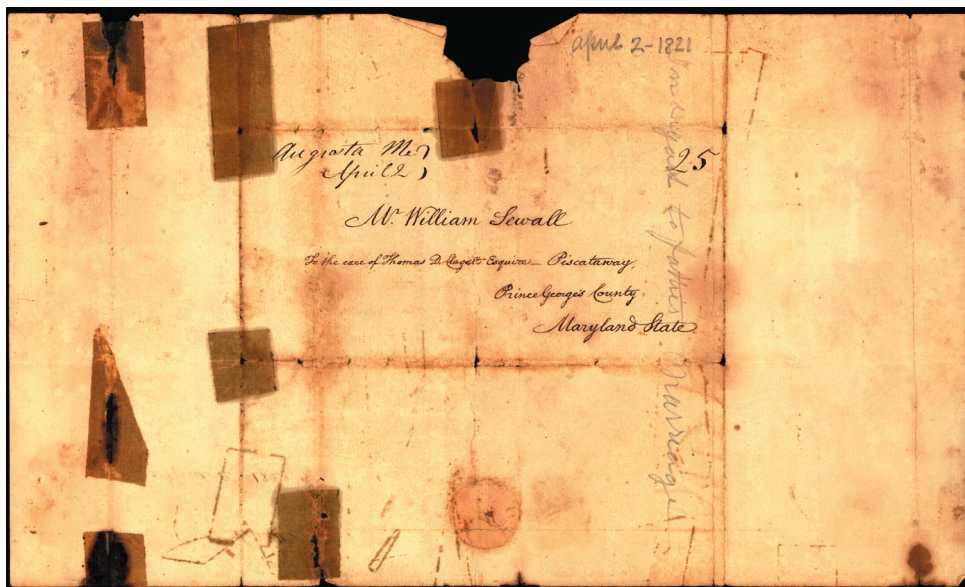 april 2-1821
Augusta Me.
April 2
25
Mr. William Sewall
To the care of Thomas D. Clagett Esquire - Piscataway,
Prince George's County
Maryland State
In regard to father's Marriage